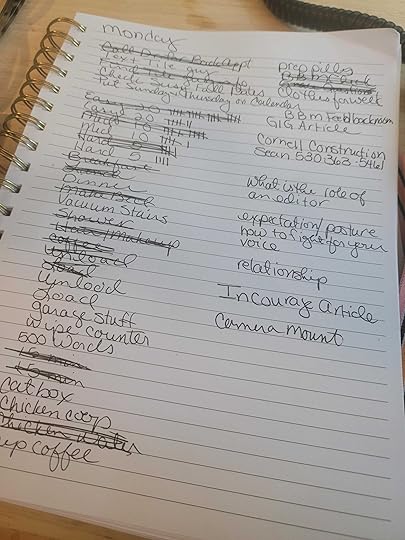 Monday
Call Back Appt
Text Tile guy
Check Fall Dates
Put Sunday/Thursday on Calendar
Easy 30
Easy 20
Mid 10
Hard 5
Hard 5
Breakfast
Lunch
Dinner
Make Bed
Vacuum Stairs
Shower
Hair/Makeup
coffee
Unload
Load
Unload
Load
garage stuff
wipe counter
500 words
15 min
15 min
Cat box
Chicken coop
Chicken
up coffee
prep pills
Questions
Clothes for week
BBM Feedback room
GIG Article
Cornell Construction
Sean 530-363-5461
What is the role of
an editor
expectation/posture
how to fight for your
voice
relationship
Incourage Article
Camera Mount